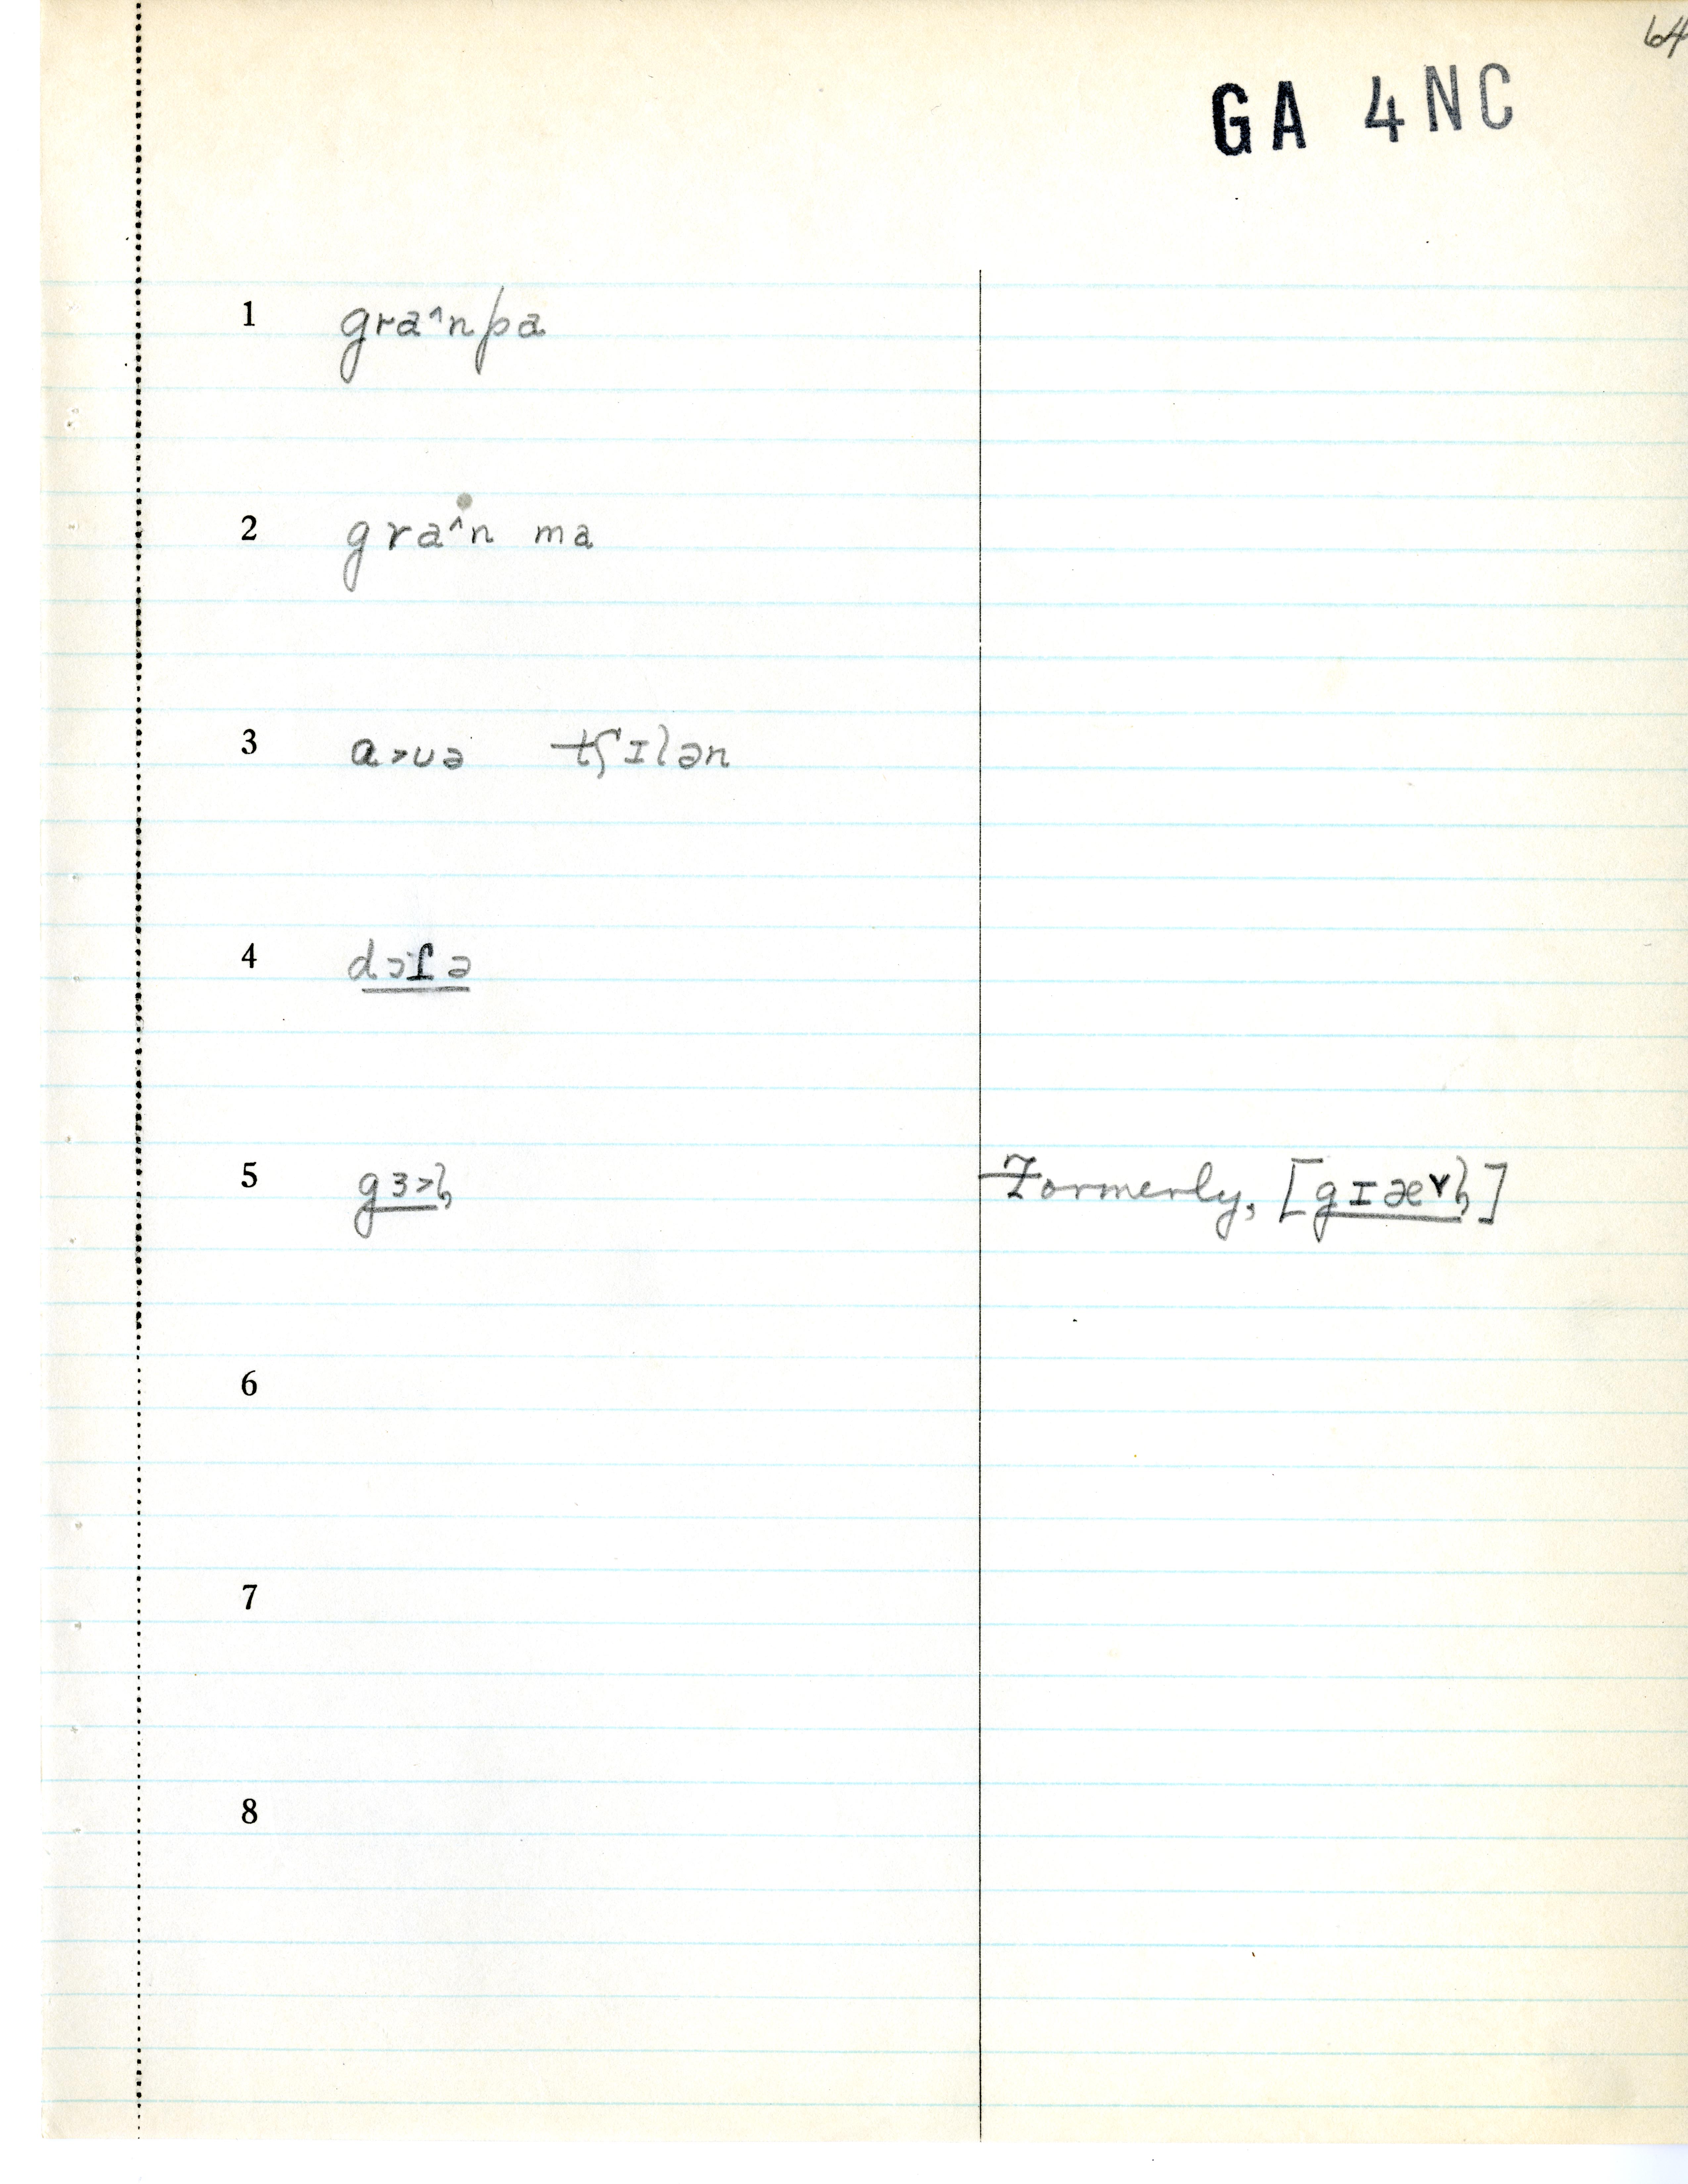 64
GA 4NC
1 gra^npa
2 gra^n ma
3 ɑ>uə tʃɪlən
4 dɔtə
5 gɜ>l̩ Formerly, [gɪæ˅l̩]
6
7
8